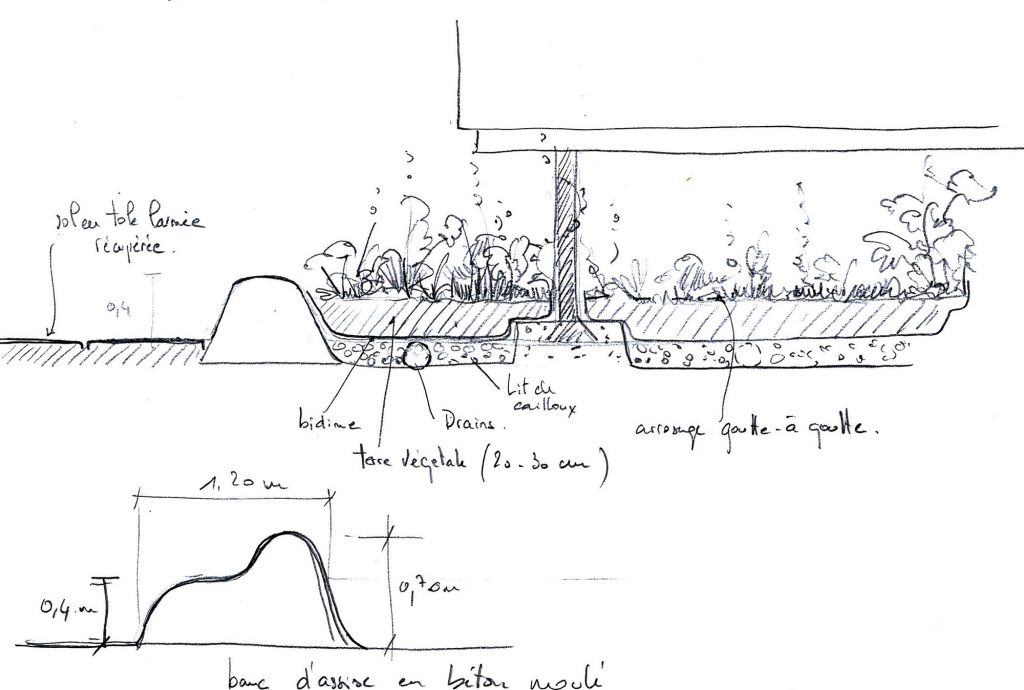 sol en tole larmée
récupérée.
0,4
bidime
Drains.
Lit de
cailloux
terre végétale (20-30 cm)
arrosage goutte-à goutte.
1,20 m
0,4 m
0,70m
banc d'assise en béton moulé